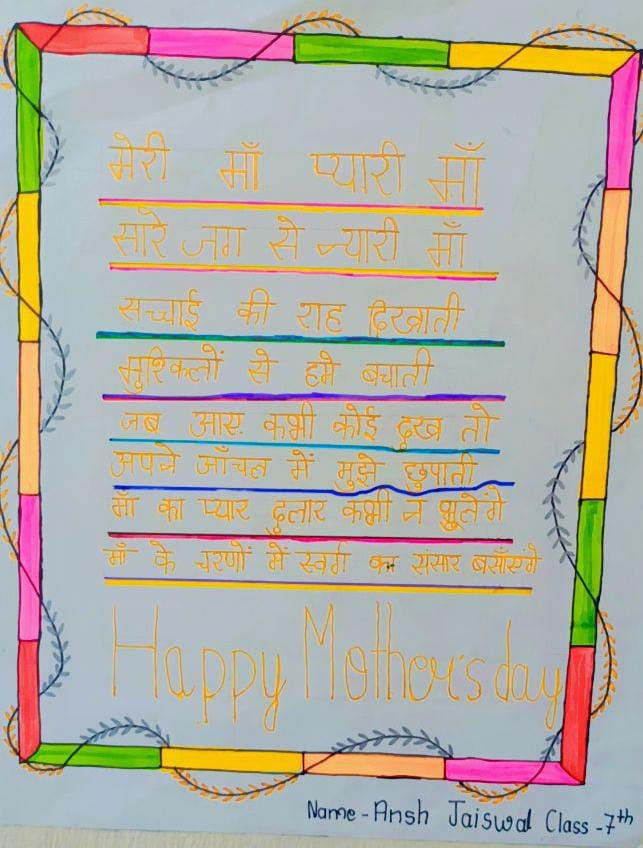 मेरी माँ प्यारी माँ
सारे जग से न्यारी माँ
सच्चाई की राह दिखाती
मुश्किलों से हमे बचाती
जब आए कभी कोई दुख तो
अपने आँचल में मुझे छुपाती
माँ का प्यार दुलार कभी न भूलेंगे
माँ के चरणों में स्वर्ग का संसार बसाँएंगे
Happy Mother's day
Name - Ansh Jaiswal Class - 7th